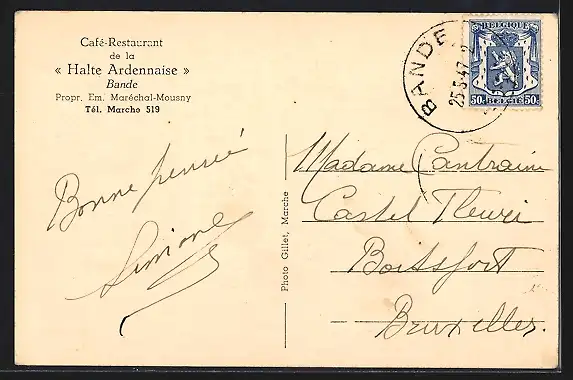 Café-Restaurant
de la
« Halte Ardennaise »
Bande
Propr. Em. Maréchal-Mousny
Tél. Marche 519
Bonne pensée
Simone
Photo Gillet, Marche
BANDE
25-5-47
BELGIQUE
50c BELGIE 50c
Madame Cantraine
Castel Fleuri
Boitsfort
Bruxelles.